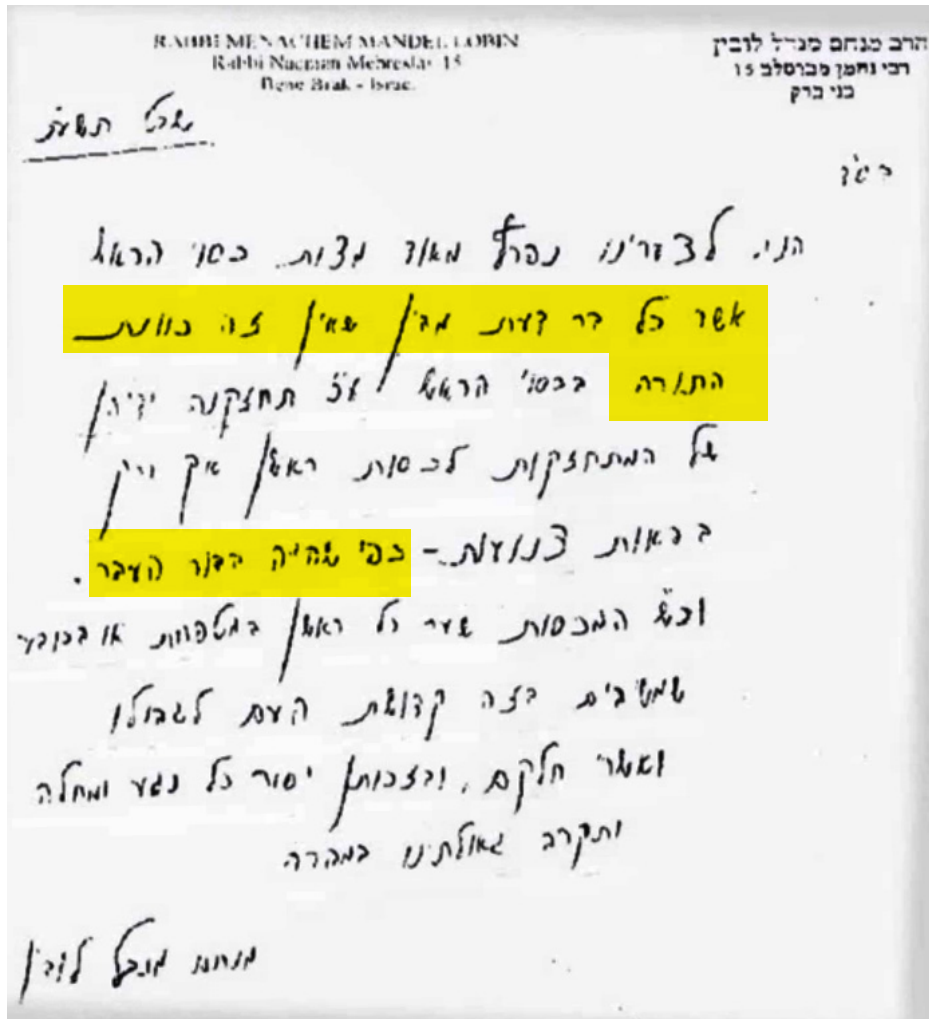 RABBI MENACHEM MANDEL LOBIN
Rabbi Nacman Mebreslav 15
Bene Brak - Israe.
הרב מנחם מנדל לובין
רבי נחמן מברסלב 15
בני ברק
שבט תשע"ח
בס"ד
הנה לצערינו נפרץ מאוד מצות כסוי הראש
אשר כל בר דעת מבין שאין זה כוונת
התורה בכסוי הראש ע"כ תחזקנה ידיהן
של המתחזקות לכסות ראשן אך ורק
בפאות צנועות - כפי שהיה בדור העבר.
וכ"ש המכסות שער כל ראשן במטפחת או בכובע
שמשיבים בזה קדושת העם לגבולו
ואשרי חלקם, ובזכותן יסור כל נגע ומחלה
ותקרב גאולתינו במהרה
מנחם מנדל לובין